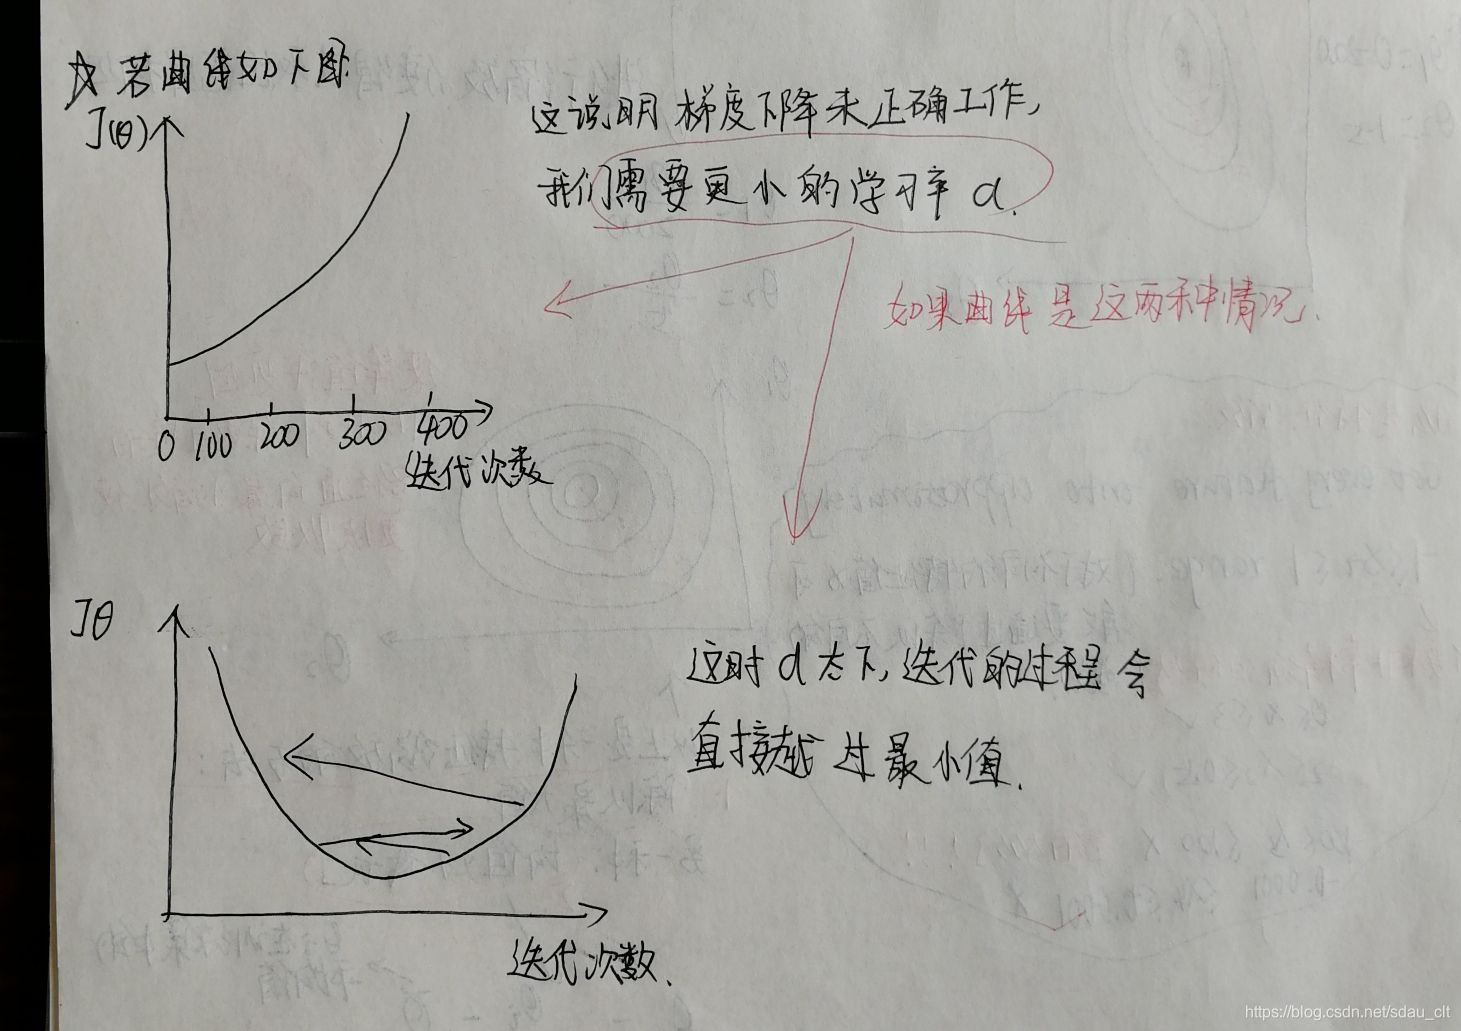 ☆ 若曲线如下图:
J(θ)
这说明梯度下降未正确工作,
我们需要更小的学习率 α.
如果曲线是这两种情况.
0 100 200 300 400
迭代次数
Jθ
这时 α 太下, 迭代的过程会
直接越过最小值.
迭代次数.
https://blog.csdn.net/sdau_clt